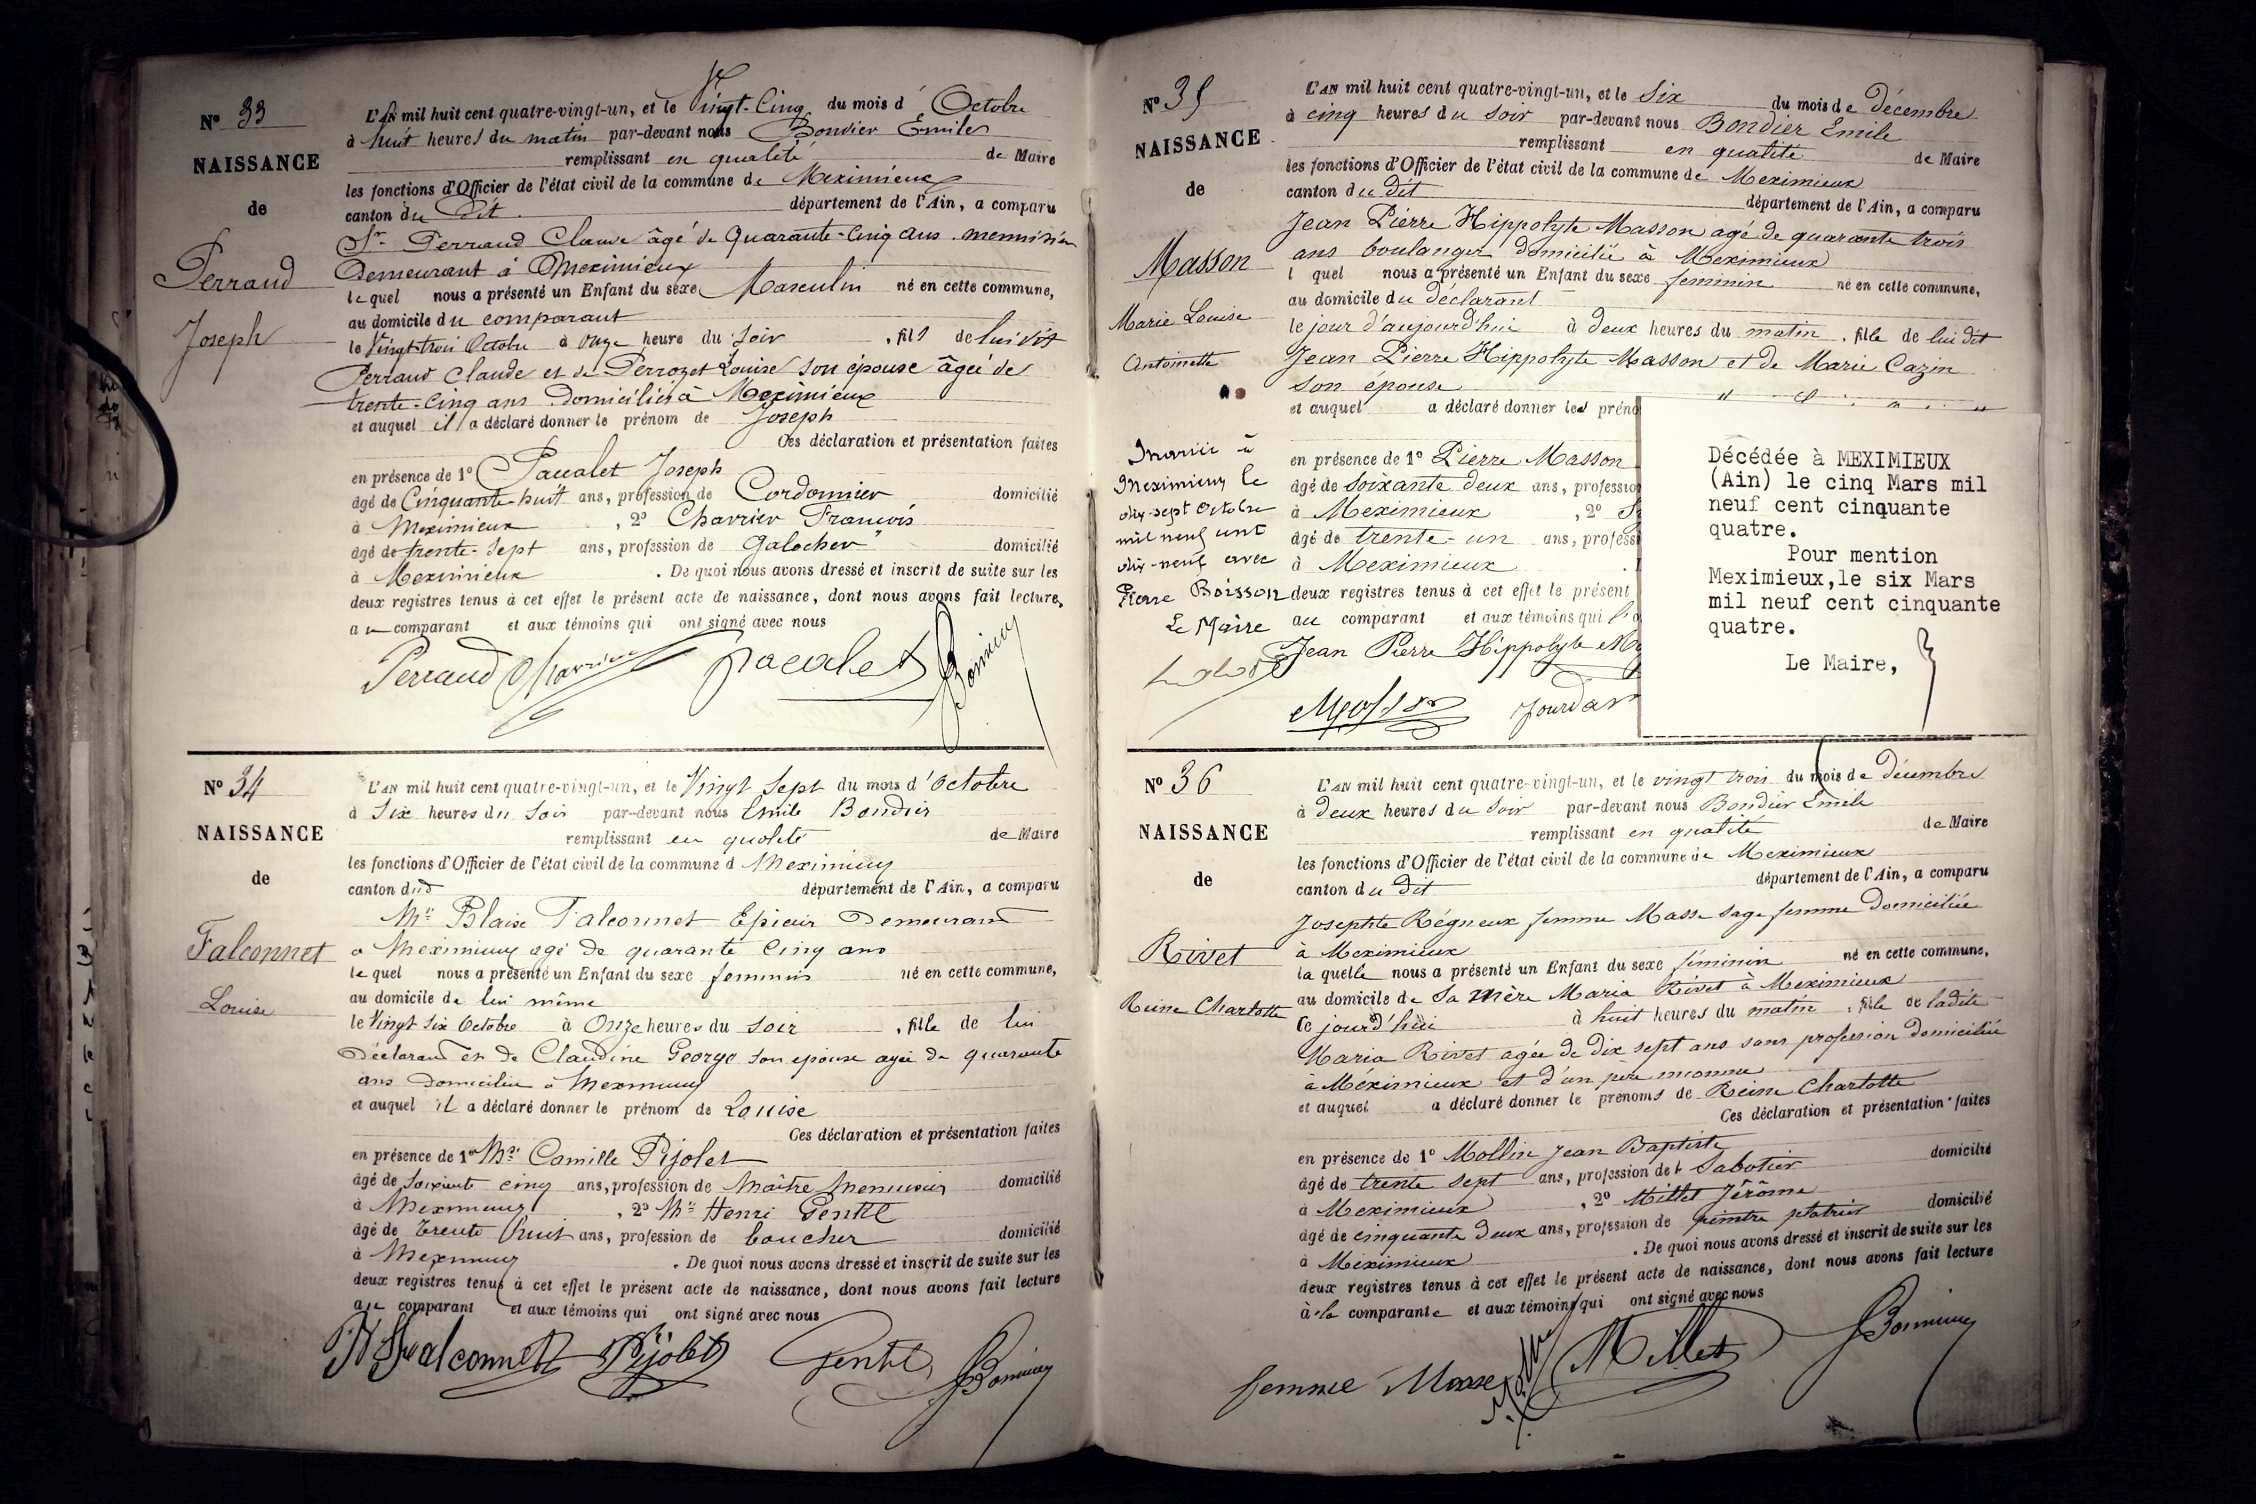 N° 33
NAISSANCE
de
Perraud
Joseph
L'AN mil huit cent quatre-vingt-un, et le Vingt-Cinq du mois d' Octobre
à huit heures du matin par-devant nous Bondier Emile
remplissant en qualité de Maire
les fonctions d'Officier de l'état civil de la commune de Meximieux
canton du dit département de l'Ain, a comparu
Sr Perraud Claude âgé de Quarante-Cinq ans menuisier
Demeurant à Meximieux
lequel nous a présenté un Enfant du sexe Masculin né en cette commune,
au domicile du comparant
le Vingt-trois Octobre à onze heure du soir, fils de lui dit
Perraud Claude et de Perrozet Louise son épouse âgée de
trente-cinq ans domiciliés à Meximieux
et auquel il a déclaré donner le prénom de Joseph
Ces déclaration et présentation faites
en présence de 1° Pacalet Joseph
âgé de Cinquante-huit ans, profession de Cordonnier domicilié
à Meximieux, 2° Charrier François
âgé de trente-sept ans, profession de Galocher domicilié
à Meximieux. De quoi nous avons dressé et inscrit de suite sur les
deux registres tenus à cet effet le présent acte de naissance, dont nous avons fait lecture,
au comparant et aux témoins qui ont signé avec nous
Perraud Charrier Pacalet
N° 34
NAISSANCE
de
Falconnet
Louise
L'AN mil huit cent quatre-vingt-un, et le Vingt Sept du mois d'Octobre
à Six heures du Soir par-devant nous Emile Bondier
remplissant en qualité de Maire
les fonctions d'Officier de l'état civil de la commune d Meximieux
canton dud département de l'Ain, a comparu
Mr Blaise Falconnet Epicier Demeurant
à Meximieux agé de quarante cinq ans
lequel nous a présenté un Enfant du sexe feminin né en cette commune,
au domicile de lui même
le Vingt Six Octobre à Onze heures du soir, fille de lui
Déclarant et de Claudine George son epouse agée de quarante
ans domiciliée à Meximieux
et auquel il a déclaré donner le prénom de Louise
Ces déclaration et présentation faites
en présence de 1er Mr Camille Pijolet
âgé de Soixante cinq ans, profession de Maître Menuisier domicilié
à Meximieux, 2° Mr Henri Gentil
âgé de Trente huit ans, profession de boucher domicilié
à Meximieux. De quoi nous avons dressé et inscrit de suite sur les
deux registres tenus à cet effet le présent acte de naissance, dont nous avons fait lecture
au comparant et aux témoins qui ont signé avec nous
Falconnet Pijolet Gentil
N° 35
NAISSANCE
de
Masson
Marie Louise
Antoinette
Mariée à
Meximieux le
dix-sept Octobre
mil neuf cent
dix-neuf avec
Pierre Boisson
Le Maire
L'AN mil huit cent quatre-vingt-un, et le Six du mois de décembre
à cinq heures du soir par-devant nous Bondier Emile
remplissant en qualité de Maire
les fonctions d'Officier de l'état civil de la commune de Meximieux
canton du dit département de l'Ain, a comparu
Jean Pierre Hippolyte Masson agé de quarante trois
ans boulanger domicilié à Meximieux
l quel nous a présenté un Enfant du sexe feminin né en cette commune,
au domicile du déclarant
le jour d'aujourd'hui à deux heures du matin, fille de lui dit
Jean Pierre Hippolyte Masson et de Marie Cazin
son épouse
et auquel a déclaré donner les préno
en présence de 1° Pierre Masson
âgé de soixante deux ans, professio
à Meximieux, 2°
âgé de trente-un ans, profess
à Meximieux
deux registres tenus à cet effet le présent
au comparant et aux témoins qui
Jean Pierre Hippolyte
Masson Jourdan
Décédée à MEXIMIEUX
(Ain) le cinq Mars mil
neuf cent cinquante
quatre.
Pour mention
Meximieux,le six Mars
mil neuf cent cinquante
quatre.
Le Maire,
N° 36
NAISSANCE
de
Rivet
Reine Charlotte
L'AN mil huit cent quatre-vingt-un, et le vingt trois du mois de décembre
à deux heures du soir par-devant nous Bondier Emile
remplissant en qualité de Maire
les fonctions d'Officier de l'état civil de la commune de Meximieux
canton du dit département de l'Ain, a comparu
Josephte Régneux femme Masse sage femme domiciliée
à Meximieux
laquelle nous a présenté un Enfant du sexe féminin né en cette commune,
au domicile de sa mère Maria Rivet à Meximieux
ce jourd'hui à huit heures du matin, fille de ladite
Maria Rivet agée de dix sept ans sans profession domiciliée
à Méximieux et d'un père inconnu
et auquel a déclaré donner le prénoms de Reine Charlotte
Ces déclaration et présentation faites
en présence de 1° Mollin Jean Baptiste
âgé de trente sept ans, profession de Sabotier domicilié
à Meximieux, 2° Millet Jérôme
âgé de cinquante deux ans, profession de peintre platrier domicilié
à Meximieux. De quoi nous avons dressé et inscrit de suite sur les
deux registres tenus à cet effet le présent acte de naissance, dont nous avons fait lecture
à la comparante et aux témoins qui ont signé avec nous
femme Masse Millet